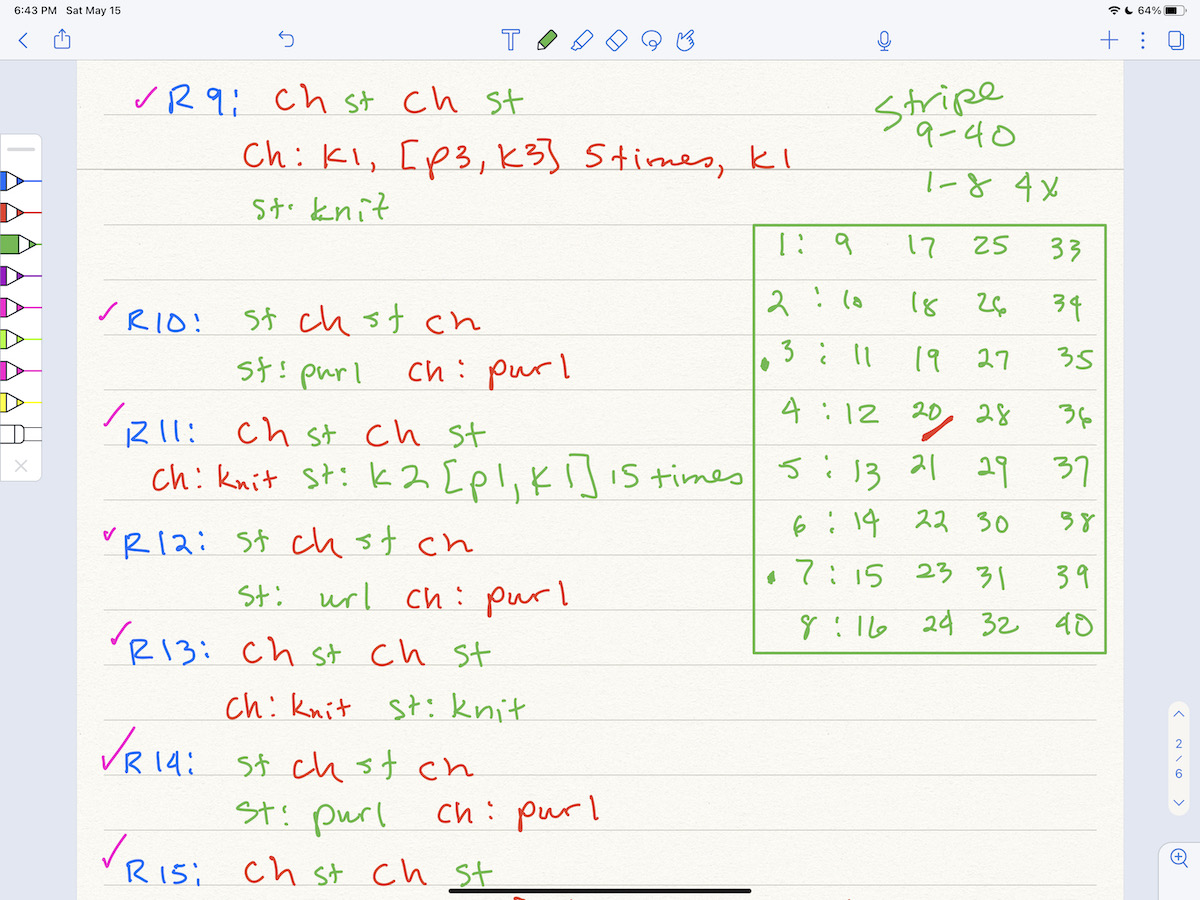 6:43 PM Sat May 15
64%
T
R9: Ch st ch st
Ch: K1, [p3, K3] 5 times, K1
st: knit
R10: st ch st ch
st: purl ch: purl
R11: Ch st ch st
Ch: knit st: k2 [p1, K1] 15 times
R12: st ch st ch
st: url ch: purl
R13: Ch st ch st
Ch: knit st: knit
R14: st ch st ch
st: purl ch: purl
R15: Ch st ch st
Stripe
9-40
1-8 4x
1: 9 17 25 33
2: 10 18 26 34
3: 11 19 27 35
4: 12 20 28 36
5: 13 21 29 37
6: 14 22 30 38
7: 15 23 31 39
8: 16 24 32 40
2
/
6